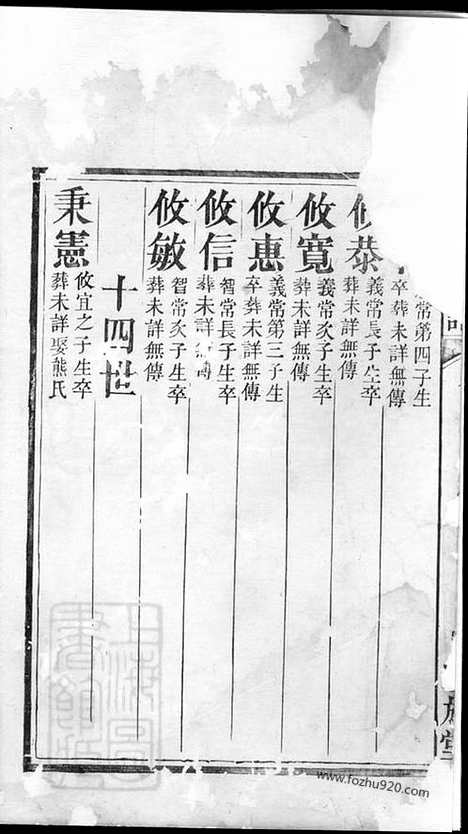 常第四子生
卒葬未詳無傳
攸恭
義常長子生卒
葬未詳無傳
攸寬
義常次子生卒
葬未詳無傳
攸惠
義常第三子生
卒葬未詳無傳
攸信
智常長子生卒
葬未詳無傳
攸敏
智常次子生卒
葬未詳無傳
十四世
秉憲
攸宜之子生卒
葬未詳娶熊氏
上海圖
書館藏
www.fozhu920.com